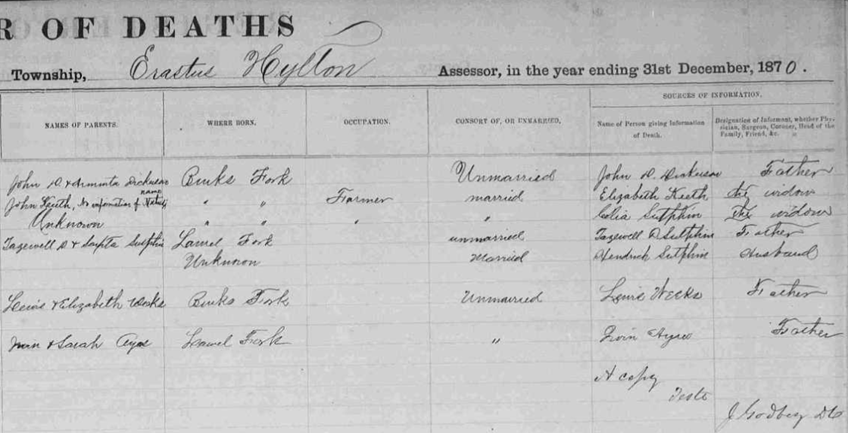 R OF DEATHS
Township, Erastus Hylton Assessor, in the year ending 31st December, 1870.
SOURCES OF INFORMATION.
NAMES OF PARENTS. WHERE BORN. OCCUPATION. CONSORT OF, OR UNMARRIED. Name of Person giving Information of Death. Designation of Informant, whether Physician, Surgeon, Coroner, Head of the Family, Friend, &c.
John D & Aminta Dickerson Burks Fork Unmarried John D. Dickerson Father
John Keith, No information of name " " Farmer married Elizabeth Keith the widow
Unknown " " " " Celia Sutphin The widow
Tazewell D & Sutphin Laurel Fork unmarried Tazewell D Sutphin Father
Unknown Married Hendrick Sutphin Husband
Lewis & Elizabeth Weeks Burks Fork Unmarried Lewis Weeks Father
& Sarah Ayres Laurel Fork " Ayres Father
A copy
Teste
J Godbey DC